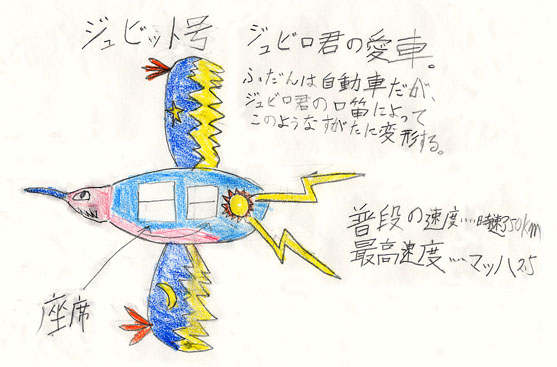 ジュビット号
ジュビロ君の愛車。
ふだんは自動車だが、
ジュビロ君の口笛によって
このようなすがたに変形する。
普段の速度‥‥時速350km
最高速度‥‥マッハ2.5
座席